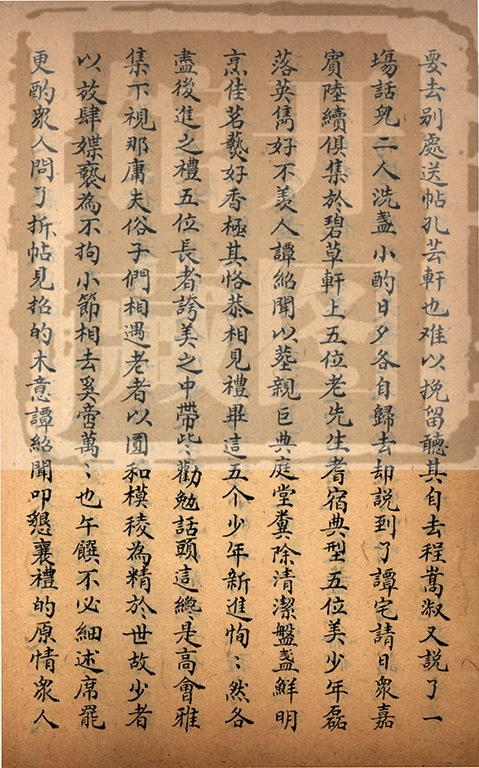 要去别處送帖孔芸軒也难以挽留聽其自去程嵩淑又說了一
塲話兒二人洗盞小酌日夕各自歸去却說到了譚宅請日衆嘉
賓陸續俱集於碧草軒上五位老先生耆宿典型五位美少年磊
落英雋好不羡人譚紹聞以塟親巨典庭堂糞除清潔盤盞鮮明
烹佳茗爇好香極其恪恭相見禮畢這五个少年新進恂〻然各
盡後進之禮五位長者誇美之中帶些〻勸勉話頭這総是高會雅
集下視那庸夫俗子們相遇老者以圓和模稜為精於世故少者
以放肆媟褻為不拘小節相去奚啻萬〻也午饌不必細述席罷
更酌衆人問了折帖見招的木意譚紹聞叩懇襄禮的原情衆人